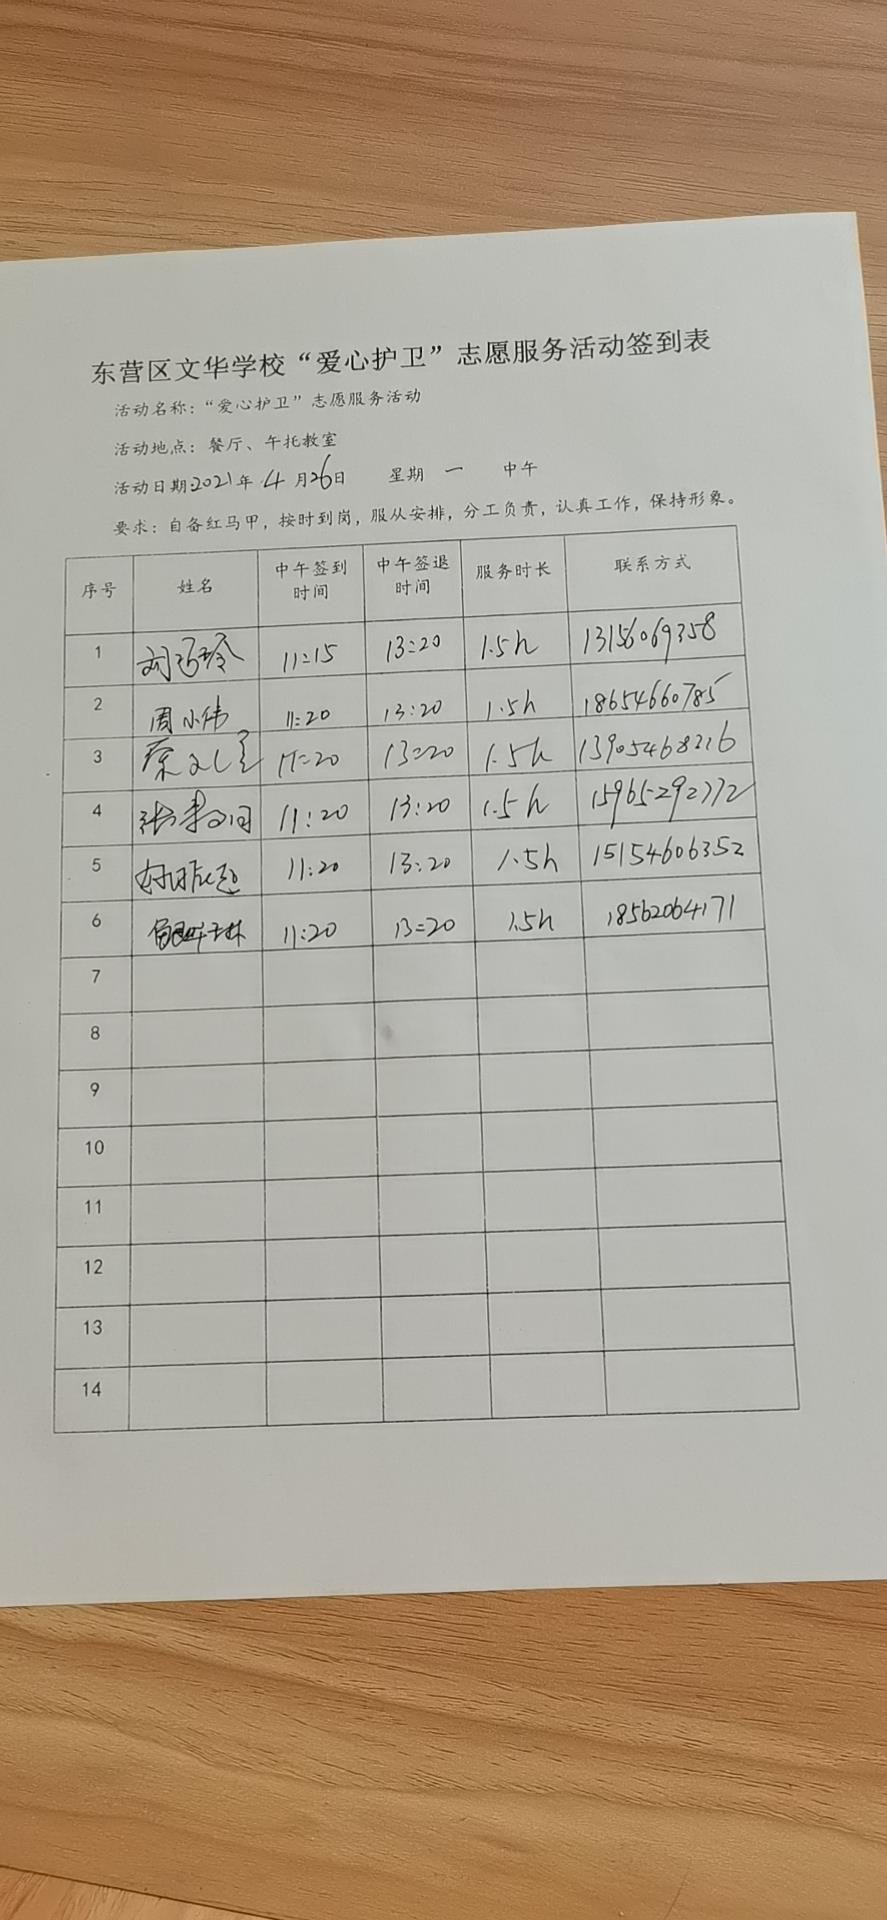 东营区文华学校“爱心护卫”志愿服务活动签到表
活动名称：“爱心护卫”志愿服务活动
活动地点：餐厅、午托教室
活动日期2021年4月26日 星期 一 中午
要求：自备红马甲，按时到岗，服从安排，分工负责，认真工作，保持形象。
序号 姓名 中午签到时间 中午签退时间 服务时长 联系方式
1 刘巧玲 11:15 13:20 1.5h 13156069358
2 周小伟 11:20 13:20 1.5h 18654660785
3 11:20 13:20 1.5h 13905468216
4 11:20 13:20 1.5h 15965292772
5 11:20 13:20 1.5h 15154606352
6 11:20 13:20 1.5h 18562064171
7
8
9
10
11
12
13
14